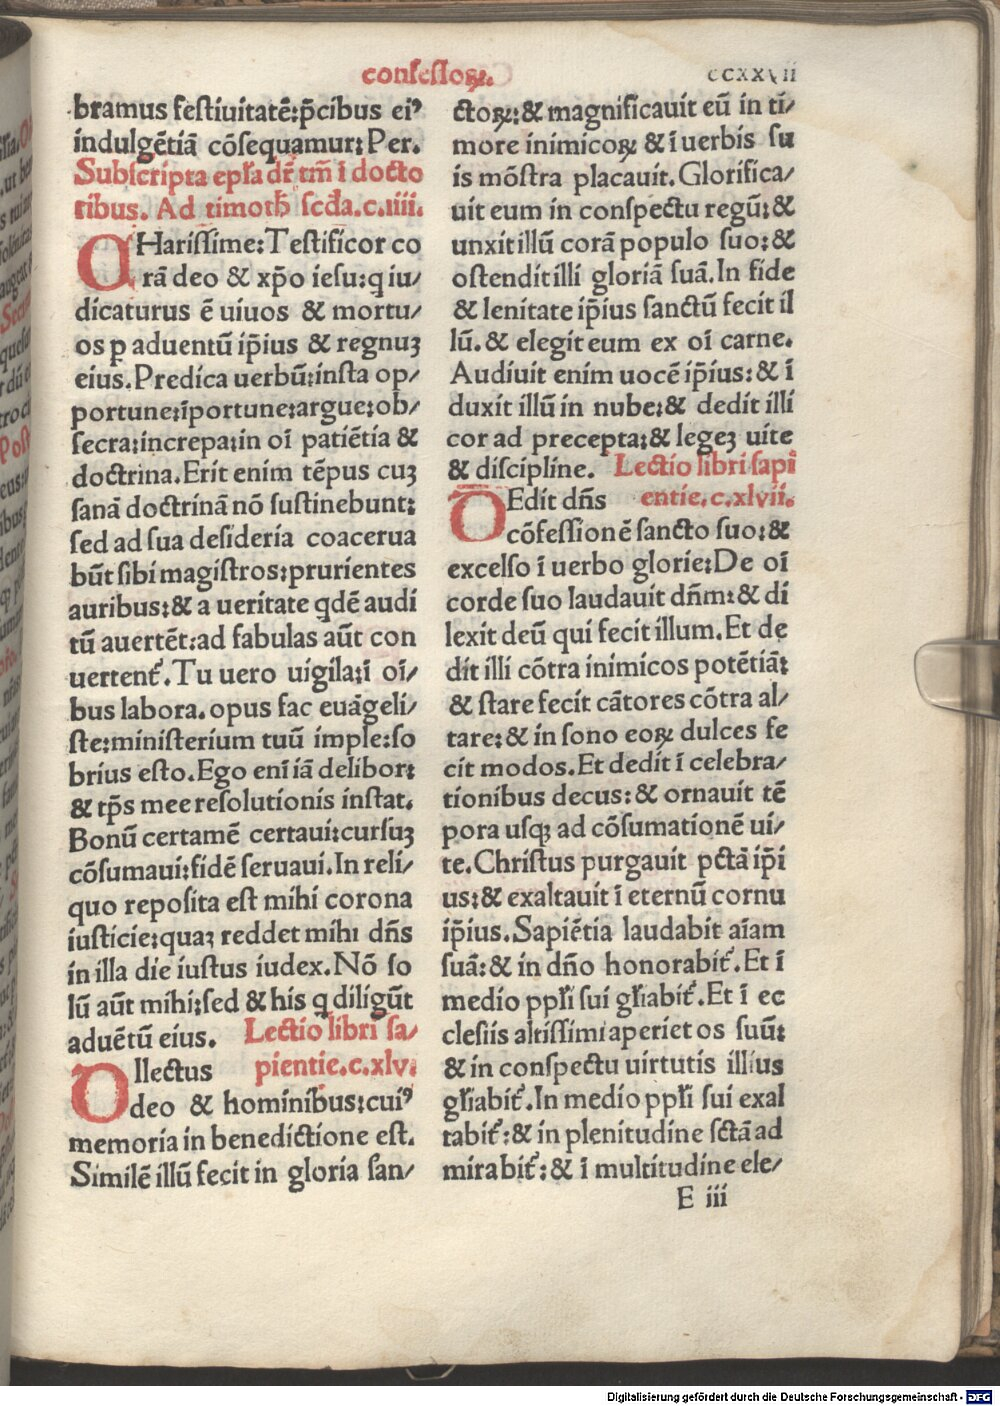 confessoꝝ.
CCXXVII
bramus festiuitatē:p̄cibus eiꝰ
indulgētiā cōsequamur: Per.
Subscripta epl̄a dr̄ tm̄ ī docto
ribus. Ad timoth̄ scd̄a.c.iiii.
CHarissime:Testificor co
rā deo & xp̄o iesu:q iu/
dicaturus ē uiuos & mortu/
os p aduentū ip̄ius & regnuꝫ
eius.Predica uerbū:insta op/
portune:īportune:argue:ob/
secra:increpa:in oī patiētia &
doctrina.Erit enim tēpus cuꝫ
sanā doctrinā nō sustinebunt:
sed ad sua desideria coacerua
būt sibi magistros:prurientes
auribus:& a ueritate qdē audi
tū auertēt:ad fabulas aūt con
uertent᷑.Tu uero uigila:ī oī/
bus labora.opus fac euāgeli/
ste:ministerium tuū imple:so
brius esto.Ego enī iā delibor:
& tp̄s mee resolutionis instat.
Bonū certamē certaui:cursuꝫ
cōsumaui:fidē seruaui.In reli/
quo reposita est mihi corona
iusticie:quaꝫ reddet mihi dn̄s
in illa die iustus iudex.Nō so
lū aūt mihi:sed & his q diligūt
aduētū eius. Lectio libri sa/
pientie.c.xlv.
DIlectus
deo & hominibus:cuiꝰ
memoria in benedictione est.
Similē illū fecit in gloria san/
ctoꝝ:& magnificauit eū in ti/
more inimicoꝝ & ī uerbis su
is mōstra placauit.Glorifica/
uit eum in conspectu regū:&
unxit illū corā populo suo:&
ostendit illi gloriā suā.In fide
& lenitate ip̄ius sanctū fecit il
lū.& elegit eum ex oī carne.
Audiuit enim uocē ip̄ius:& ī
duxit illū in nube:& dedit illi
cor ad precepta:& legeꝫ uite
& discipline. Lectio libri sapī
entie.c.xlvii.
DEdit dn̄s
cōfessionē sancto suo:&
excelso ī uerbo glorie:De oī
corde suo laudauit dn̄m:& di
lexit deū qui fecit illum.Et de
dit illi cōtra inimicos potētiā:
& stare fecit cātores cōtra al/
tare:& in sono eoꝝ dulces fe
cit modos.Et dedit ī celebra/
tionibus decus:& ornauit tē
pora usqꝫ ad cōsumationē ui/
te.Christus purgauit pctā ip̄i
us:& exaltauit ī eternū cornu
ip̄ius.Sapiētia laudabit aīam
suā:& in dn̄o honorabit᷑.Et ī
medio ppl̄i sui gl̄iabit᷑.Et ī ec
clesiis altissimi aperiet os suū:
& in conspectu uirtutis illius
gl̄iabit᷑.In medio ppl̄i sui exal
tabit᷑:& in plenitudine sctā ad
mirabit᷑:& ī multitudine ele/
E iii
Digitalisierung gefördert durch die Deutsche Forschungsgemeinschaft - DFG